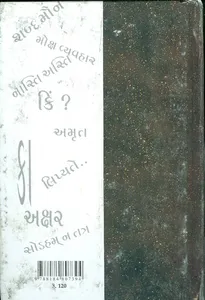 શબ્દ મૌન
મોક્ષ વ્યવહાર
નાસ્તિ અસ્તિ
કિં ?
અમૃત
લિપ્યતે..
અક્ષર
સોડહમ્ ન તત્ર
₹. 120